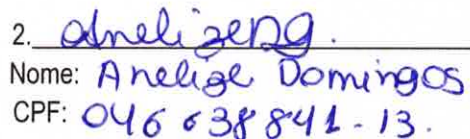 2. Anelizeng.
Nome: Anelize Domingos
CPF: 046 638 841 - 13.